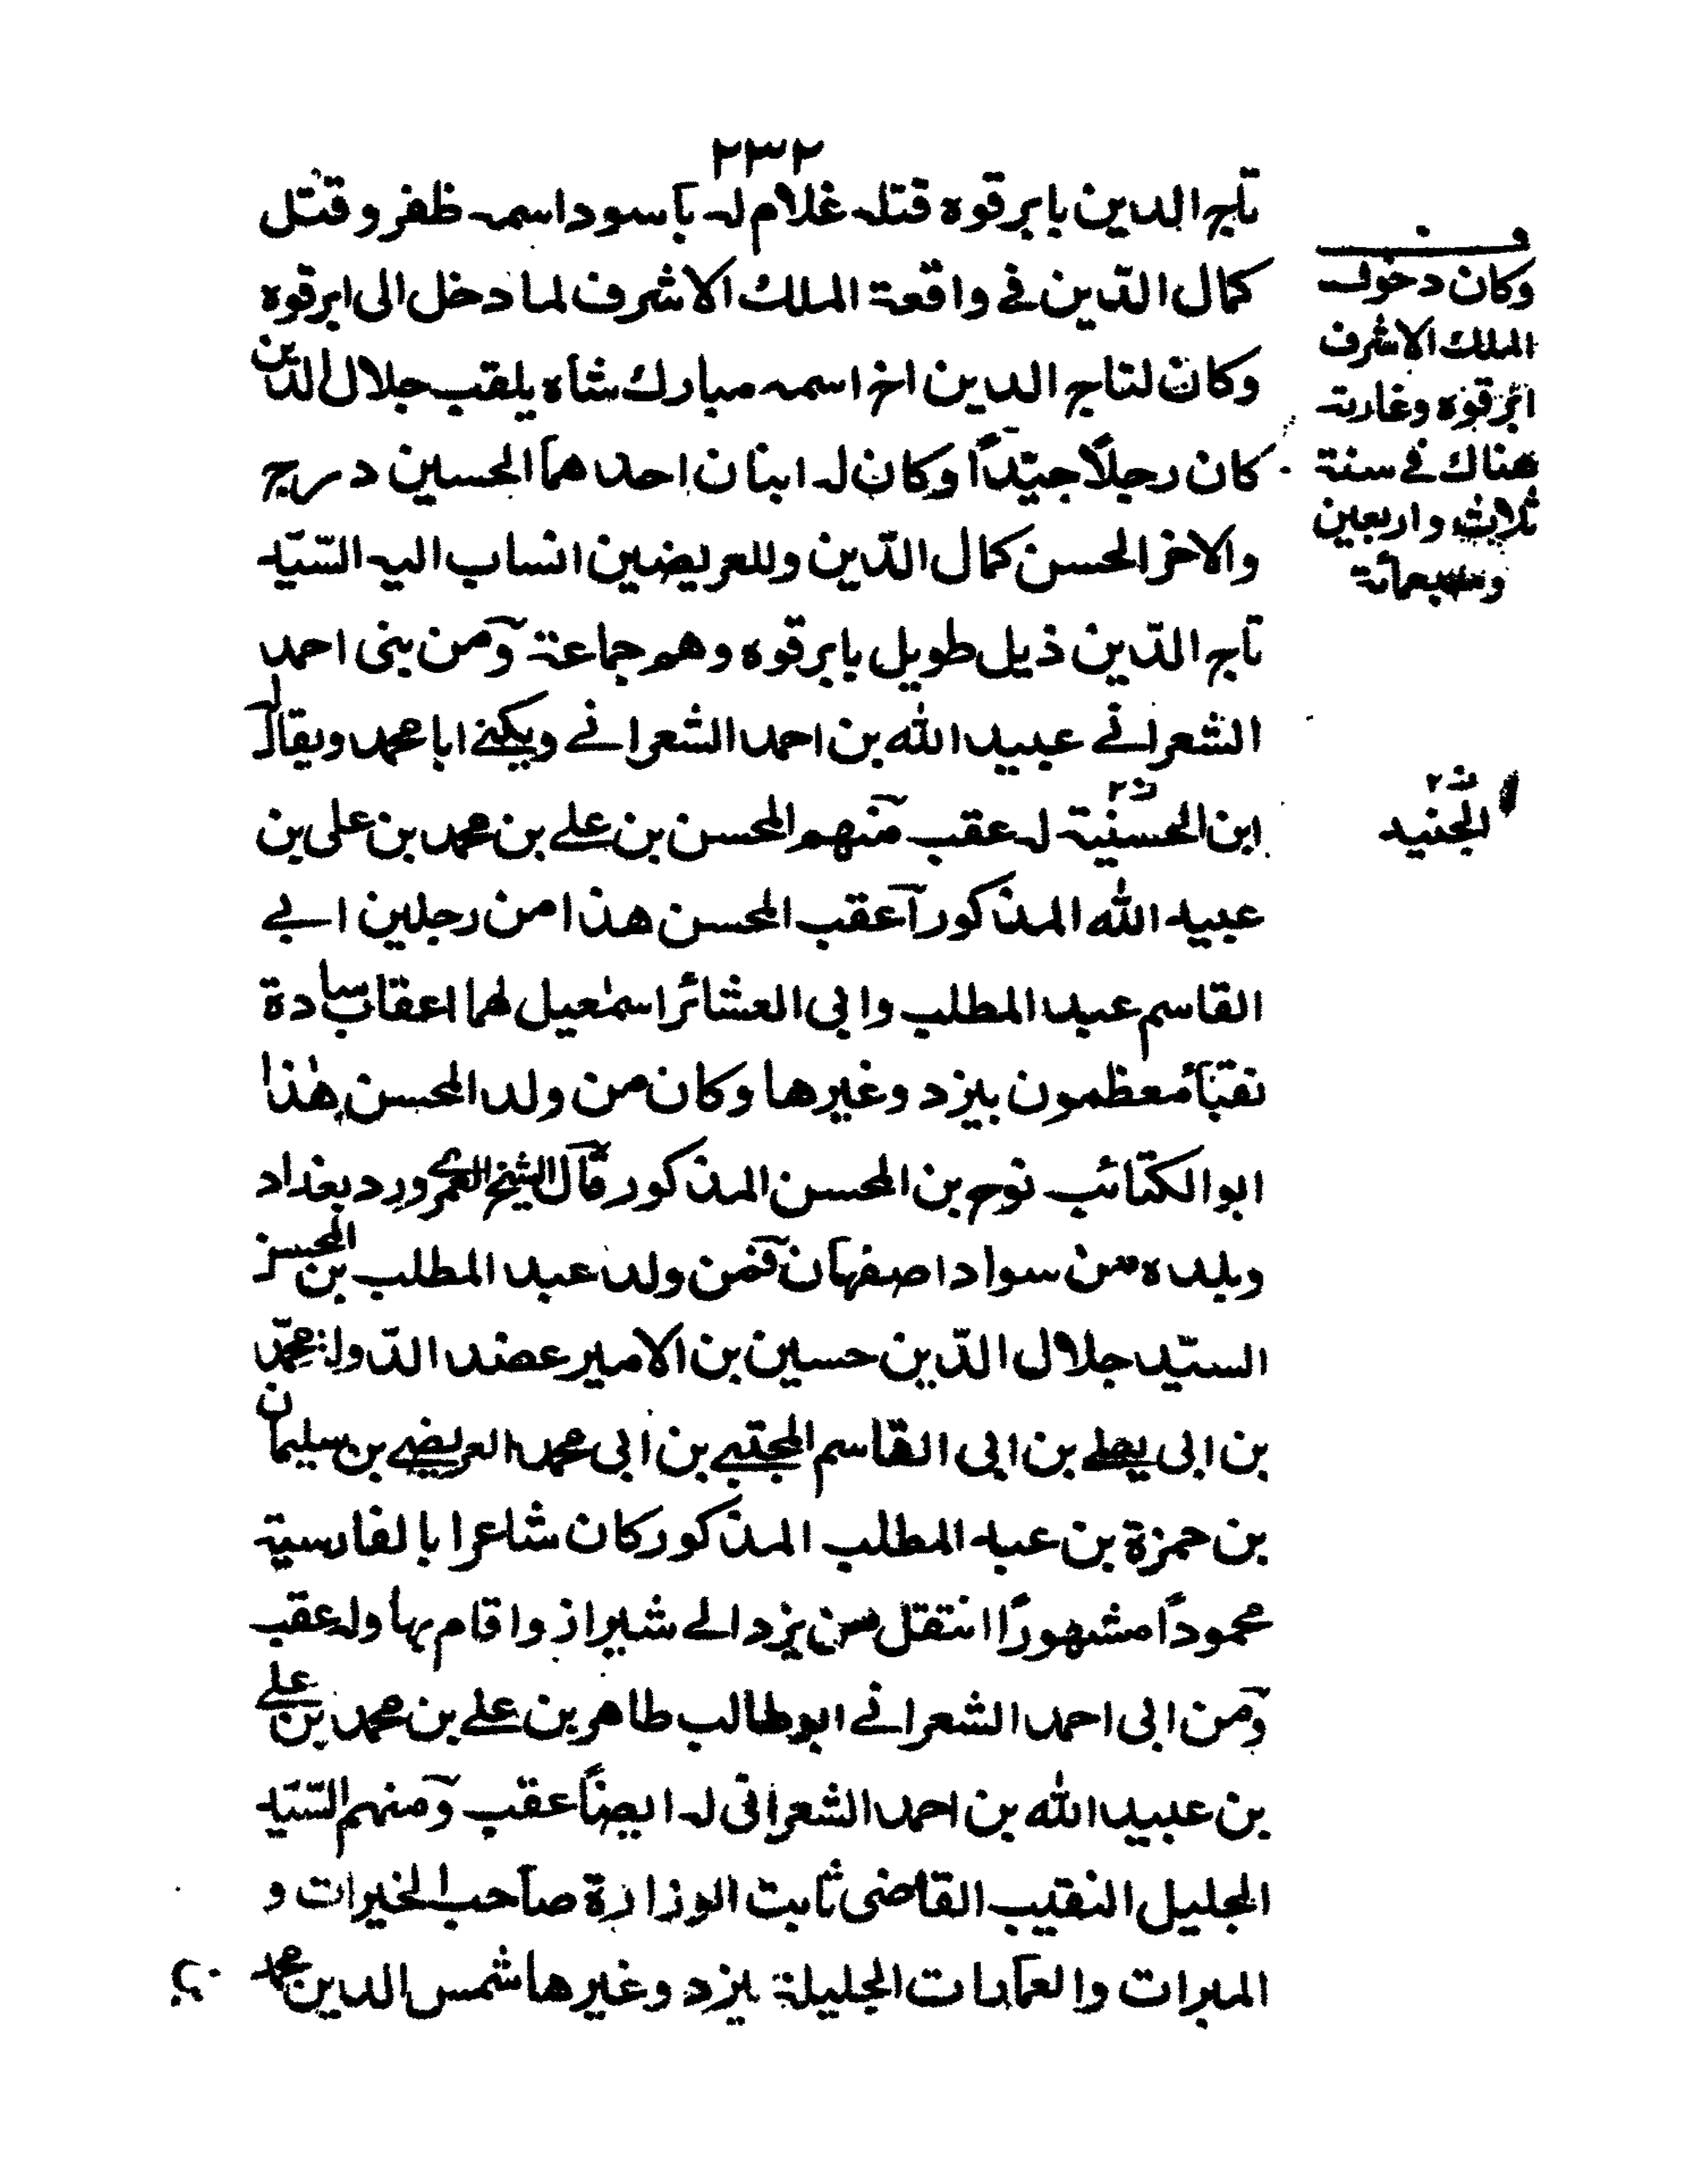 ٢٣٢
تاج الدين بابرقوه قتله غلام له بأسود اسمه ظفر و قتل
كمال الدّين في واقعة الملك الاشرف لما دخل الى ابرقوه
وكان لتاج الدين اخ اسمه مبارك شاه يلقب جلال الدّين
كان رجلًا جيّدًا وكان له ابنان احدهما الحسين درج
والاخر الحسن كمال الدّين وللعريضين انساب اليه السّيّد
تاج الدّين ذيل طويل بابرقوه وهم جماعة ومن بنى احمد
الشعراني عبيد الله بن احمد الشعراني ويكنى ابا محمد ويقال له
ابن الحسنية له عقب منهم المحسن بن علي بن محمد بن على بن
عبيد الله المذكور آعقب المحسن هذا من رجلين ابي
القاسم عبد المطلب وابى العشائر اسمٰعيل لهما اعقاب سادة
نقبآء معظمون بيزد وغيرها وكان من ولد المحسن هٰذا
ابو الكتائب نوح بن المحسن المذكور قال الشيخ العمري ورد بغداد
وبلده من سواد اصفهان فمن ولد عبد المطلب بن المحسن
السيّد جلال الدّين حسين بن الامير عضد الدّولة محمّد
بن ابى يعلي بن ابى القاسم المجتبي بن ابى محمد العريضي بن سليمان
بن حمزة بن عبد المطلب المذكور كان شاعرا بالفارسية
محمودًا مشهورًا انتقل من يزد الى شيراز واقام بها وله عقب
ومن ابى احمد الشعراني ابو طالب طاهر بن علي بن محمد بن علي
بن عبيد الله بن احمد الشعرانى له ايضًا عقب ومنهم السّيّد
الجليل النقيب القاضى ثابت الوزارة صاحب الخيرات و
المبرات والعمارات الجليلة بيزد وغيرها شمس الدين محمد
بن
وكان دخول
الملك الاشرف
ابرقوه وغارته
هناك في سنة
ثلاث واربعين
وسبعمائة
الجنيد